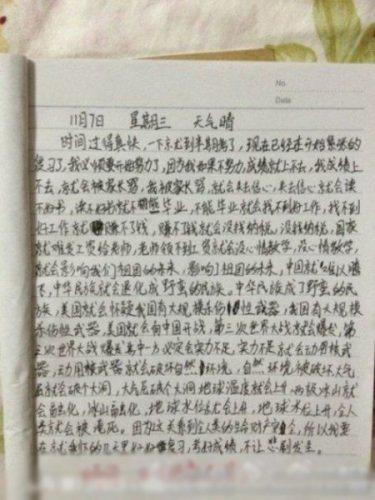 No.
Date
11月7日 星期三 天气晴
时间过得真快,一下就到半期考了,现在已经在开始紧张的
复习了,我必须要开始努力了,因为我如果不努力,成绩就上不去,我成绩上
不去,就会被家长骂,我被家长骂,就会失去信心,失去信心就会读
不好书,读不好书就不能毕业,不能毕业就会找不到好工作,找不到
好工作就赚不了钱,赚不了钱就会没钱纳税,没钱纳税,国家
就难发工资给老师,老师领不到工资就会没心情教学,没心情教学,
就会影响我们祖国的未来,影响了祖国的未来,中国就难以腾
飞,中华民族就会退化成野蛮的民族。中华民族成了野蛮的民
族,美国就会怀疑我国有大规模杀伤性武器,我国有大规模
杀伤性武器,美国就会向中国开战,第三次世界大战就会爆发,第
三次世界大战爆发其中一方必定会实力不足,实力不足就会动用核武
器,动用核武器就会破坏自然环境,自然环境被破坏大气
层就会破个大洞,大气层破个大洞地球温度就会上升,两极冰山就
会融化,冰山融化,地球水位就会上升,地球水位上升,全人
类就会被淹死。因为这关系到全人类的生命财产安全,所以我要
在就剩下的几天里好好复习,考好成绩,不让悲剧发生。